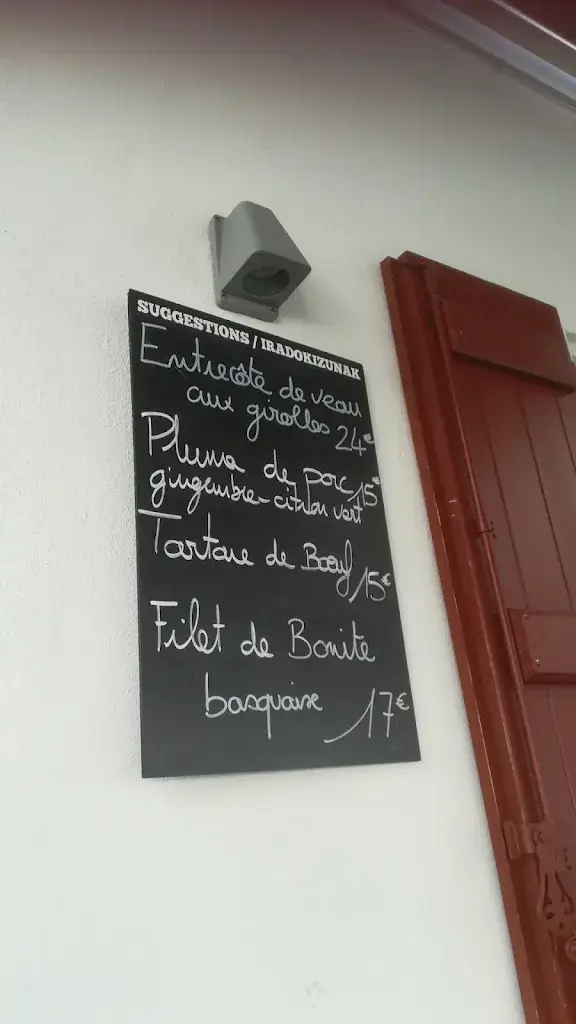 SUGGESTIONS / IRADOKIZUNAK
Entrecôte de veau
aux girolles 24€
Pluma de porc 15€
gingembre-citron vert
Tartare de Bœuf 15€
Filet de Bonite
basquaise 17€